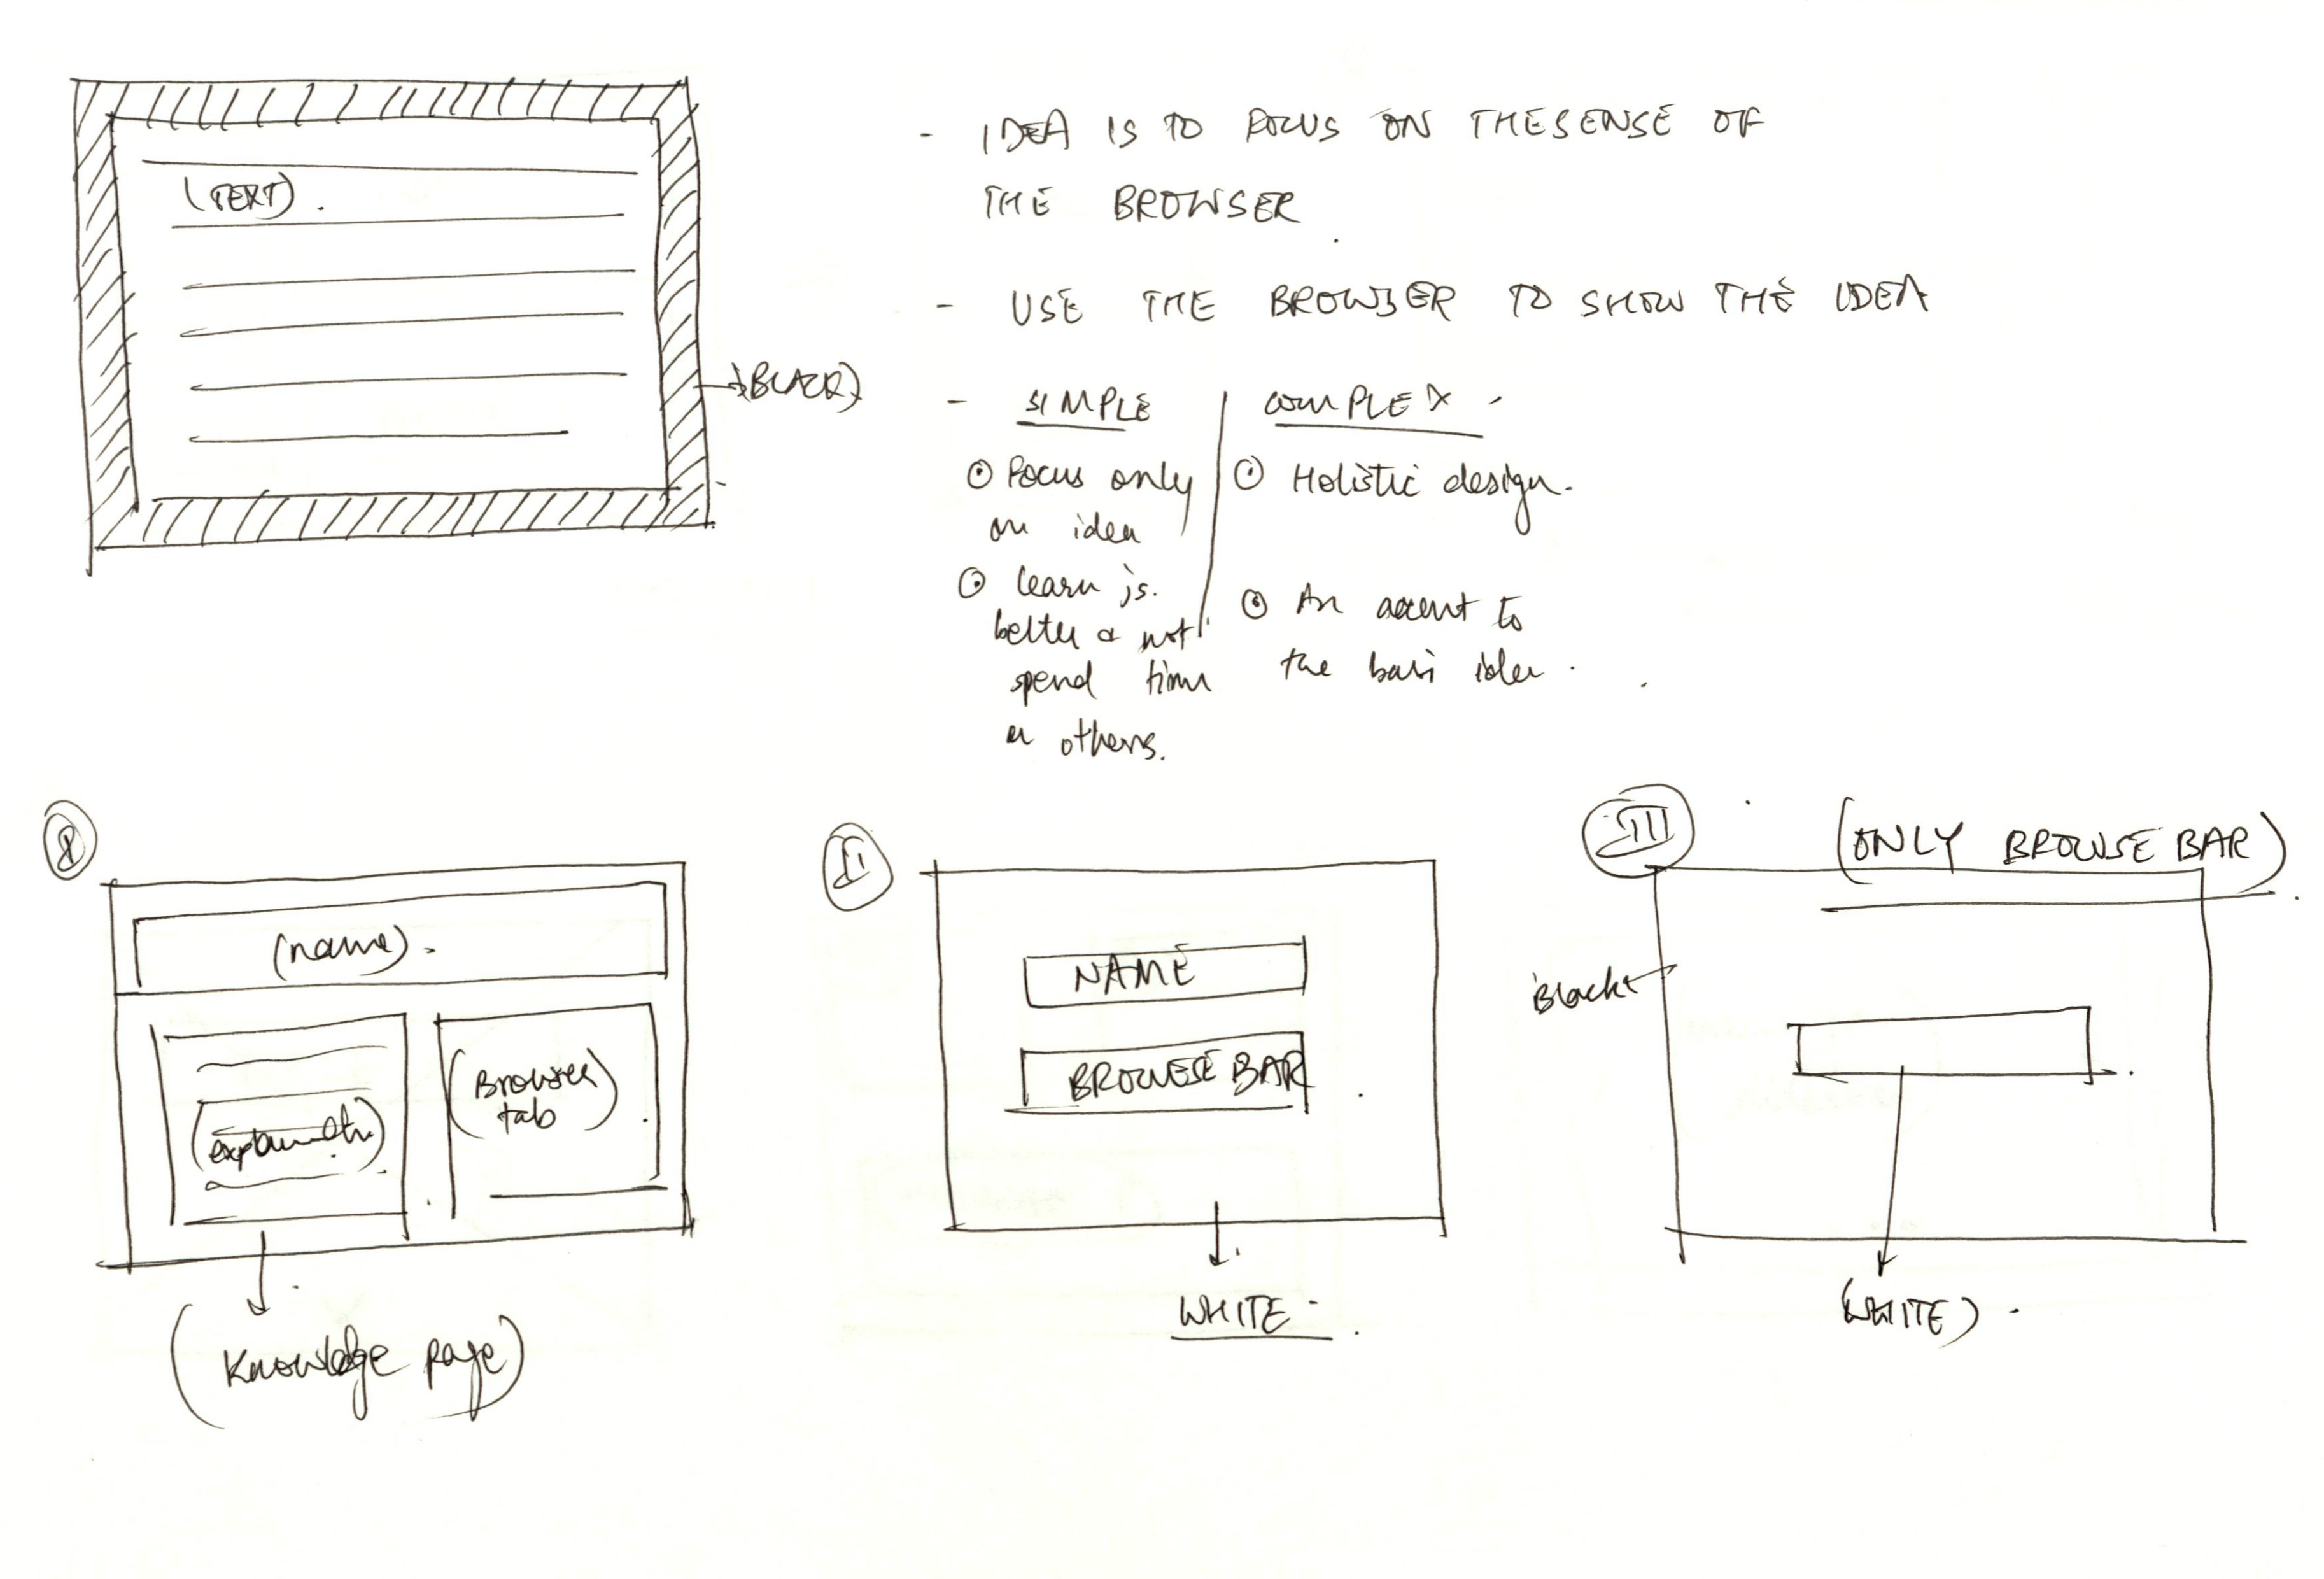 (TEXT).
(BLACK)
- IDEA IS TO FOCUS ON THE SENSE OF
THE BROWSER
- USE THE BROWSER TO SHOW THE IDEA
- SIMPLE
Focus only
on idea
learn js.
better & not
spend time
on others.
COMPLEX
Holistic design.
An accent to
the basic idea.
I
(name).
(explanation)
(Browser
tab)
(Knowledge page)
II
NAME
BROWSE BAR
WHITE
III
(ONLY BROWSE BAR)
Black
(WHITE)